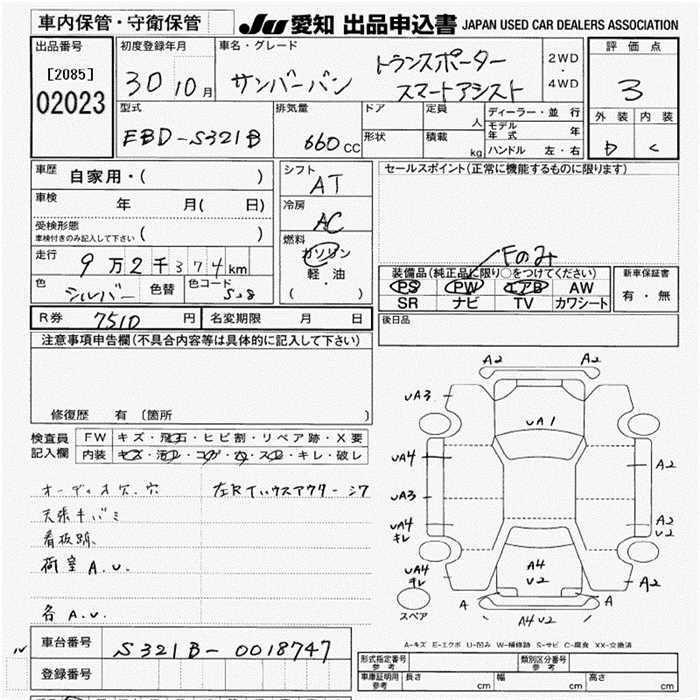 車内保管・守衛保管 JU 愛知 出品申込書 JAPAN USED CAR DEALERS ASSOCIATION
出品番号 [2085] 02023
初度登録年月 30 10月
車名・グレード サンバーバン トランスポーター スマートアシスト
2WD・4WD
評価点 3
外装 D 内装 C
型式 EBD-S321B
排気量 660 CC
ドア 形状
定員 人 積載 kg
ディーラー・並行
モデル年式 年
ハンドル 左・右
車歴 自家用・( )
車検 年 月( 日)
受検形態 車検付きのみ記入して下さい ( )
走行 9万2千374km
色 シルバー 色替 色コード S28
シフト AT
冷房 AC
燃料 ガソリン 軽・油 ( )
セールスポイント(正常に機能するものに限ります)
Fのみ
装備品(純正品に限り○をつけてください)
PS PW エアB AW
SR ナビ TV カワシート
新車保証書 有・無
R券 7510円 名変期限 月 日
後日品
注意事項申告欄(不具合内容等は具体的に記入して下さい)
修復歴 有 〔箇所 〕
検査員記入欄 FW キズ・飛石・ヒビ割・リペア跡・X要
内装 キズ・汚レ・コゲ・穴・スレ・キレ・破レ
オーディオ穴.穴
左Rインハウスアウター
天張キバミ
看板跡
荷室A.U.
各A.U.
A2 A2
UA3
UA1
UA4 A2
UA3
UA4 キレ A2 U2
UA4 キレ A4 U2 A2
A A
A4 U2
スペア
A-キズ E-エクボ U-凹み W-補修跡 S-サビ C-腐食 XX-交換済
車台番号 S321B-0018747
登録番号
形式指定番号 参考 類別区分番号 参考
車庫証明用 参考 長さ cm 幅 cm 高さ cm